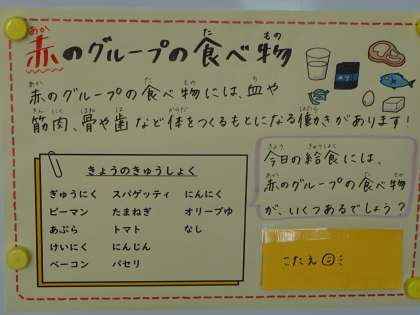 赤のグループの食べ物
赤のグループの食べ物には、血や
筋肉、骨や歯など体をつくるもとになる働きがあります!
きょうのきゅうしょく
ぎゅうにく スパゲッティ にんにく
ピーマン たまねぎ オリーブゆ
あぶら トマト なし
けいにく にんじん
ベーコン パセリ
今日の給食には、
赤のグループの食べ物
が、いくつあるでしょう?
こたえ